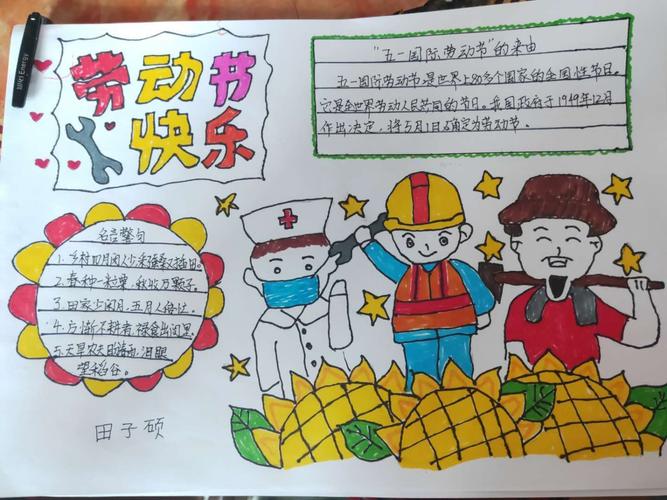 劳动节
快乐
"五一国际劳动节"的来由
五一国际劳动节是世界上80多个国家的全国性节日。
它是全世界劳动人民共同的节日。我国政府于1949年12月
作出决定，将5月1日确定为劳动节。
名言警句
1.乡村四月闲人少，才了蚕桑又插田。
2.春种一粒粟，秋收万颗子。
3.田家少闲月，五月人倍忙。
4.方惭不耕者，禄食出闾里
5.天旱农夫日
望稻谷。
田子硕